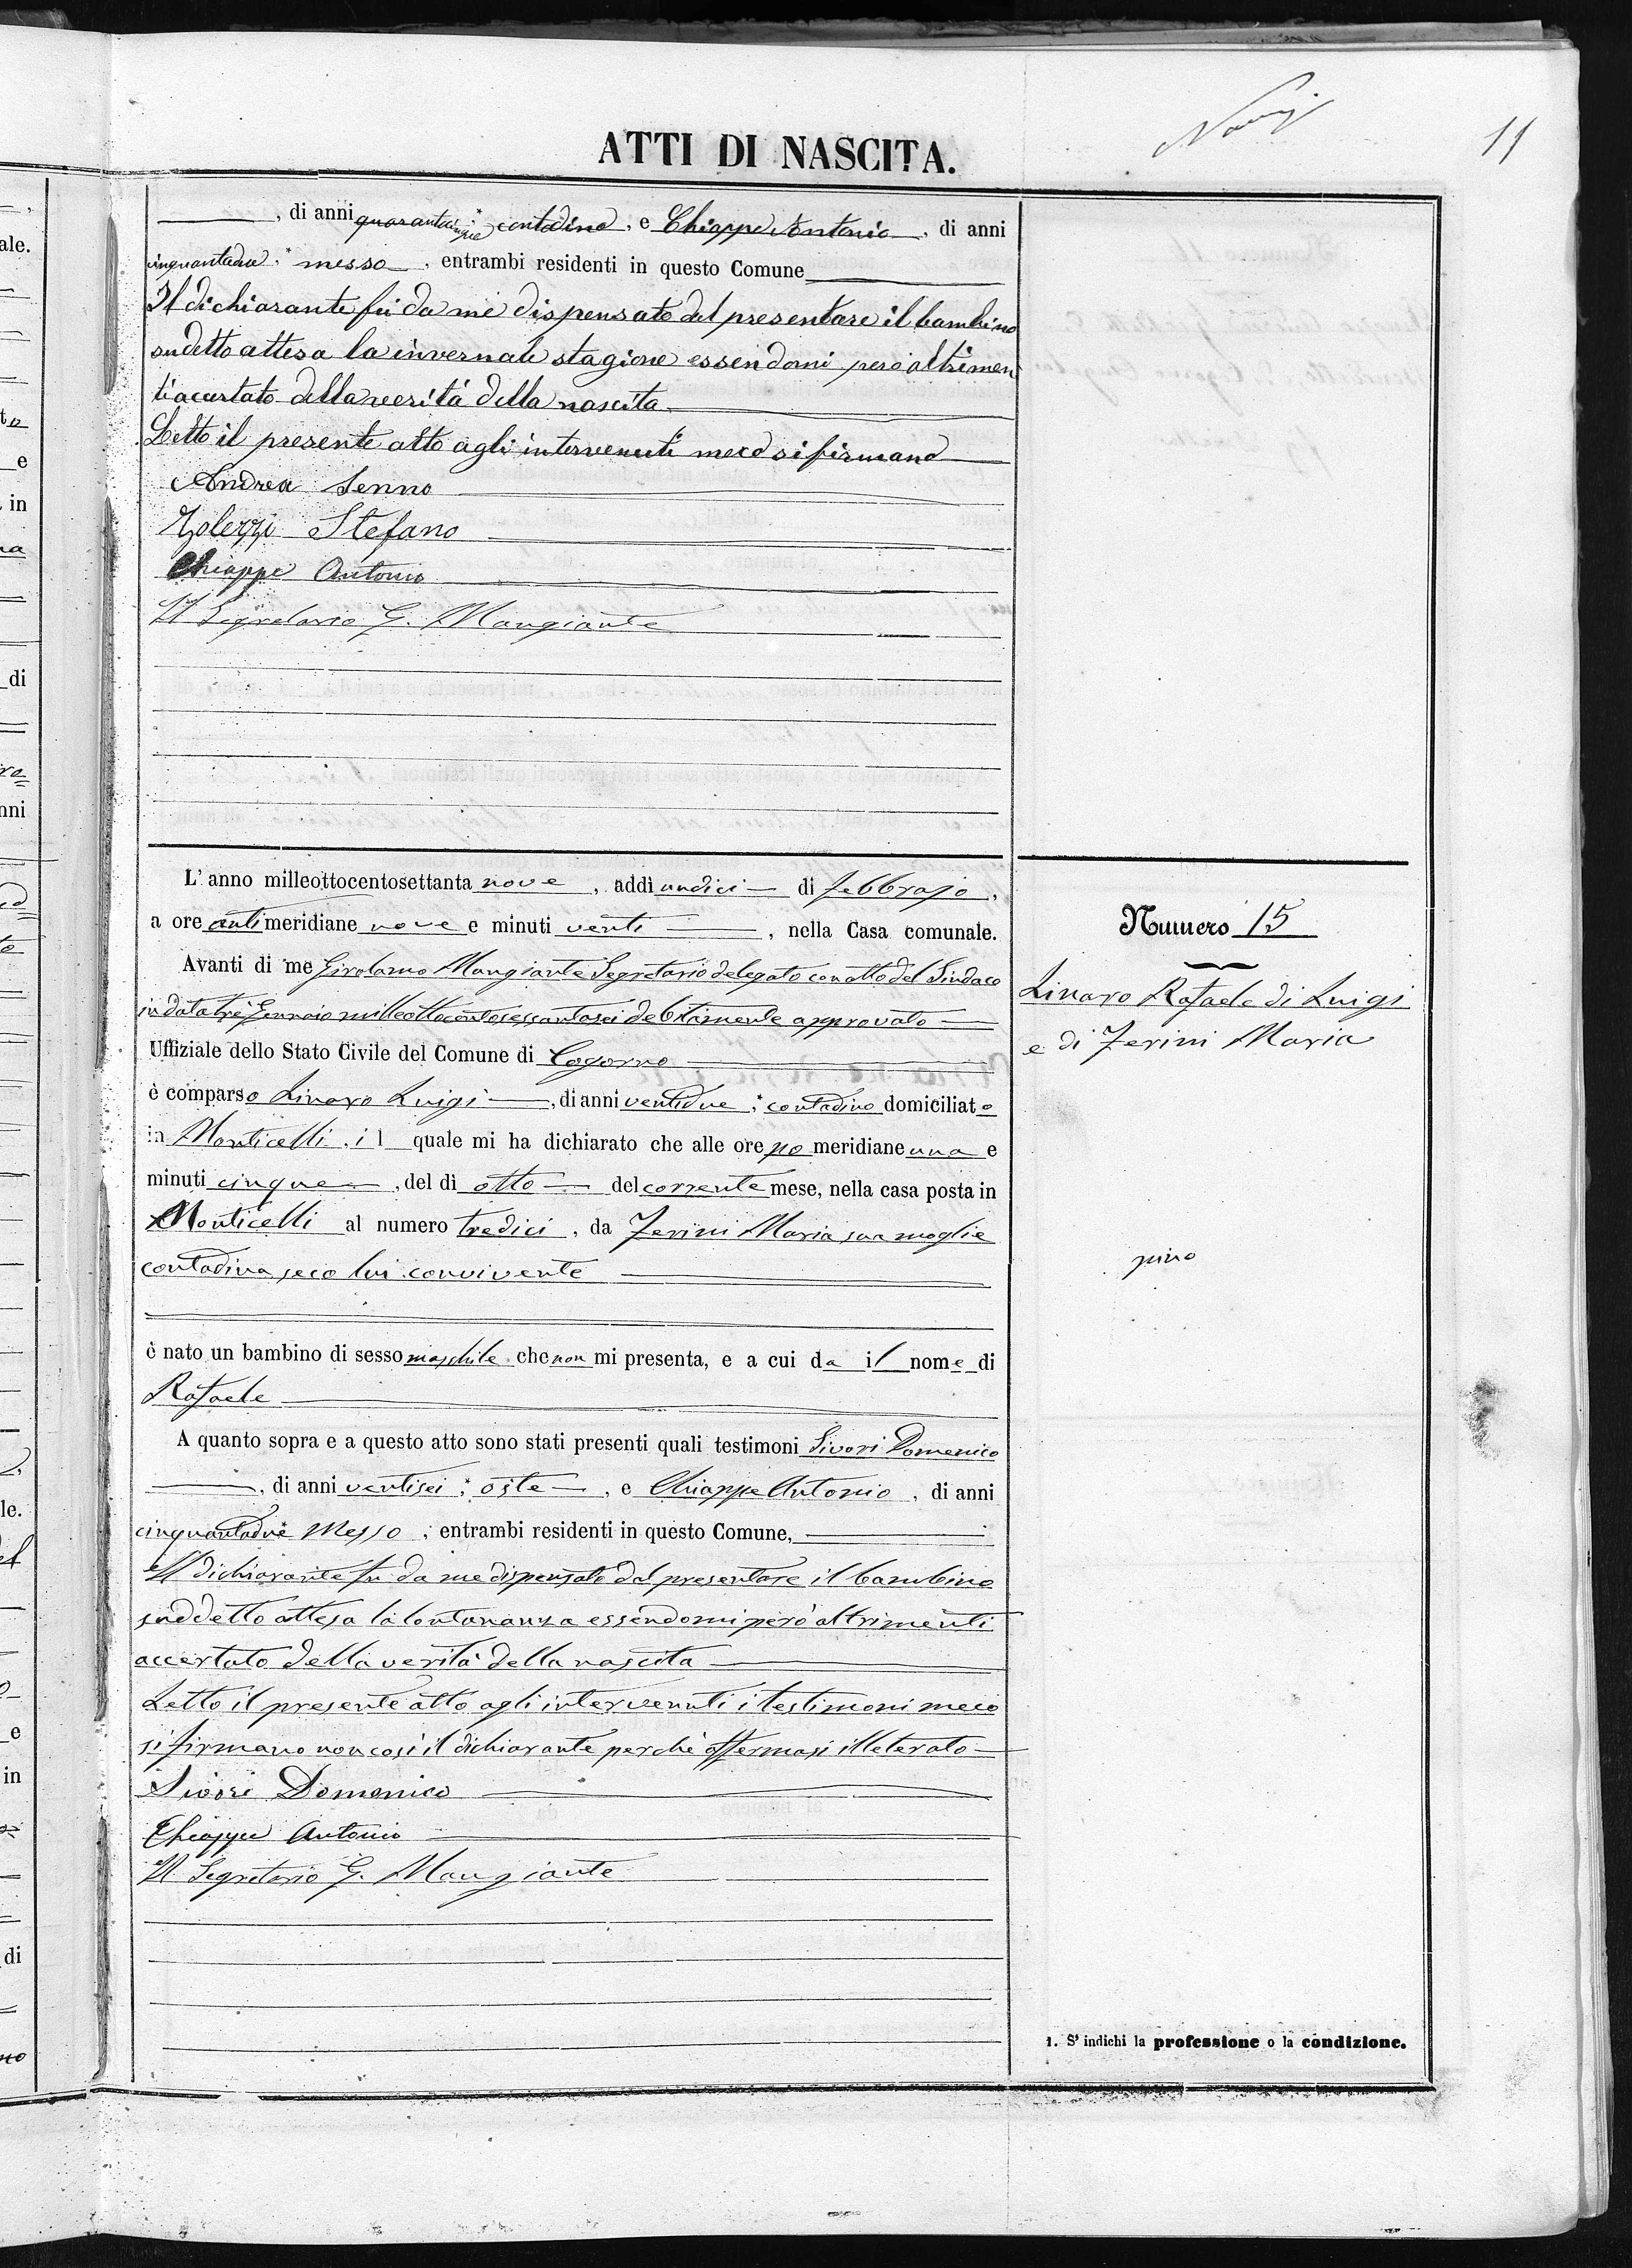 11
ATTI DI NASCITA.
, di anni quarantacinque * contadino, e Chiappe Antonio, di anni
cinquantadue, * messo, entrambi residenti in questo Comune
Il dichiarante fu da me dispensato dal presentare il bambino
sudetto attesa la invernale stagione essendomi però altrimen
ti acertato della verità della nascita
Letto il presente atto agli intervenuti meco si firmano
Andrea Senno
Zolezzi Stefano
Chiappe Antonio
Il Segretario G. Mangiante
L'anno milleottocentosettanta nove, addì undici di febbrajo,
a ore anti meridiane nove e minuti venti, nella Casa comunale.
Avanti di me Girolamo Mangiante Segretario delegato con atto del Sindaco
in data tre Gennaio milleottocentosessantasei debitamente approvato
Uffiziale dello Stato Civile del Comune di Cogorno
è comparso Linaro Luigi, di anni ventidue, * contadino domiciliato
in Monticelli, il quale mi ha dichiarato che alle ore po meridiane una e
minuti cinque, del dì otto del corrente mese, nella casa posta in
Monticelli al numero tredici, da Zerini Maria sua moglie
contadina seco lui convivente
è nato un bambino di sesso maschile che non mi presenta, e a cui da il nome di
Rafaele
A quanto sopra e a questo atto sono stati presenti quali testimoni Sivori Domenico
, di anni ventisei, * oste, e Chiappe Antonio, di anni
cinquantadue * Messo, entrambi residenti in questo Comune,
Il dichiarante fu da me dispensato dal presentare il bambino
suddetto attesa la lontananza essendomi però altrimenti
accertato della verità della nascita
Letto il presente atto agli intervenuti i testimoni meco
si firmano non così il dichiarante perchè affermasi illeterato
Sivori Domenico
Chiappe Antonio
Il Segretario G. Mangiante
Numero 15
Linaro Rafaele di Luigi
e di Zerini Maria
1. S'indichi la professione o la condizione.